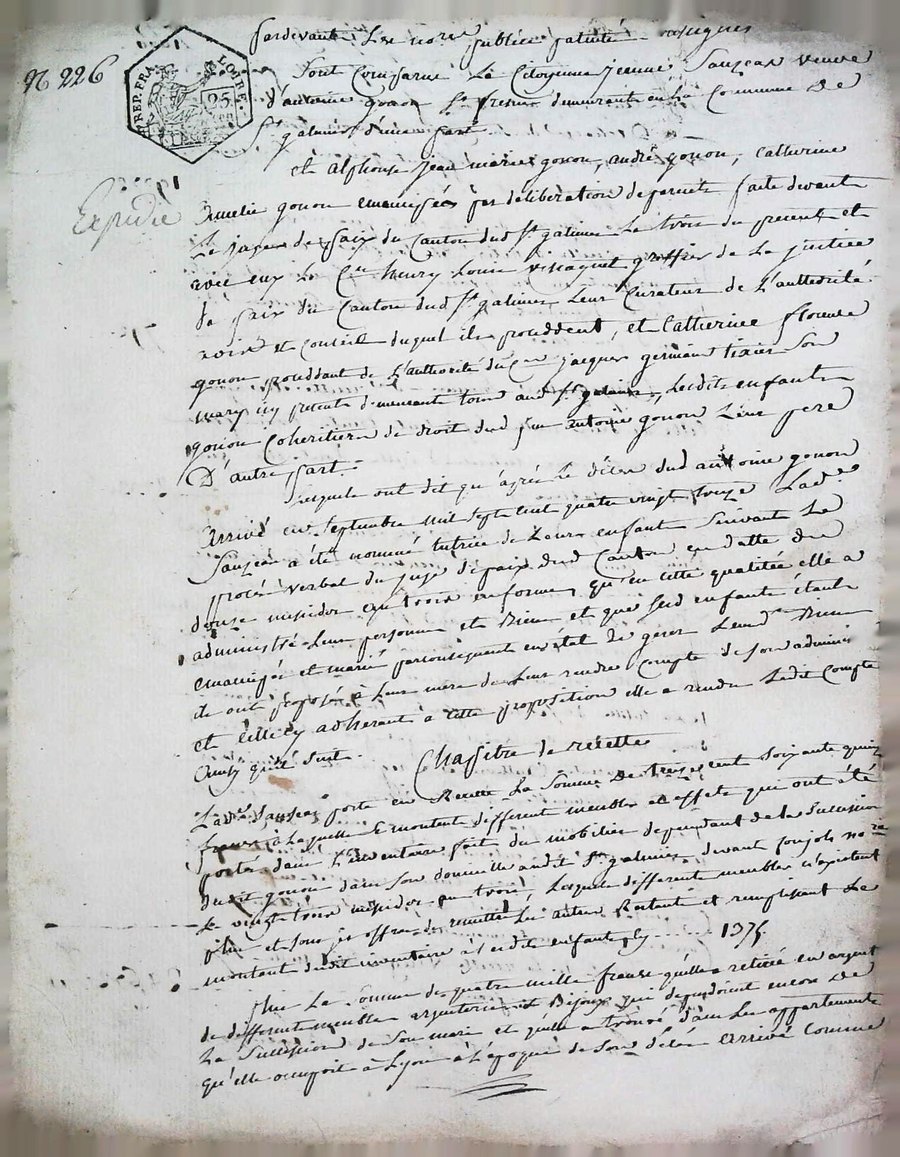 N 226
REP. FRA.
LOIRE.
25
Expédié
Pardevant Les no.res publics patentés soussignés
Sont Comparus La Citoyenne jeanne Sauzeas veuve
d'antoine gonon demeurant en La Commune De
St galmier d'une part
et alphonse jean marie gonon, andré gonon, Catherine
Amelie gonon emancipés par déliberation de parents faite devant
Le juge de paix du Canton dud. St galmier Le trois du present et
avec eux Le Cen henry Louis greffier de La justice
de paix du Canton dud. St galmier Leur Curateur de L'authorité
avis et Conseil duquel ils procedent, et Catherine florence
gonon procedant de L'authorité du Cen jacques germain tixier Son
mary icy present demeurants tous aud. St galmier, Lesdits enfants
gonon Coheritiers de droit dud. feu antoine gonon Leur pere
D'autre part.
Lesquels ont dit qu'après Le décès dud. antoine gonon
Arrivé en Septembre mil Sept cent quatre vingt treize La de
Sauzeas a été nommée tutrice de Leurs enfants Suivant Le
procès verbal du juge de paix dud. Canton en datte du
douze messidor an trois en forme, qu'en cette qualitée elle a
administré Leurs personnes et Biens et que Lesd. enfants étants
emancipés et mariés parconséquent en etat de gerer Leursd. Biens
ils ont proposé à Leur mere de Leur rendre Compte de Son adminis
et Celle cy adherant à Cette proposition elle a rendu Ledit Compte
Ainsy qu'il suit.
Chapitre de recette
La de Sauzeas porte en Recette La Somme De treize cent Soixante quinze
francs à Laquelle Se montent différent meubles et effets qui ont été
portés dans L'inventaire fait du mobilier dependant de La Succession
dudit gonon dans Son domicille audit St galmier devant no.re
Le vingt trois messidor an trois, Lesquels différents meubles n'existent
plus et Sous Les offres de remettre Les autres Restant et remplissant Le
montant dudit inventaire à Sesdits enfants, cy ....... 1375
Plus La Somme de quatre mille francs qu'elle a retirée en argent
de différents meubles argenterie et Bijoux qui dependoient encore De
La Succession de Son mari et qu'elle a trouvé dans Les appartements
qu'elle occupoit à Lyon à L'époque de Son décès Arrivé Comme